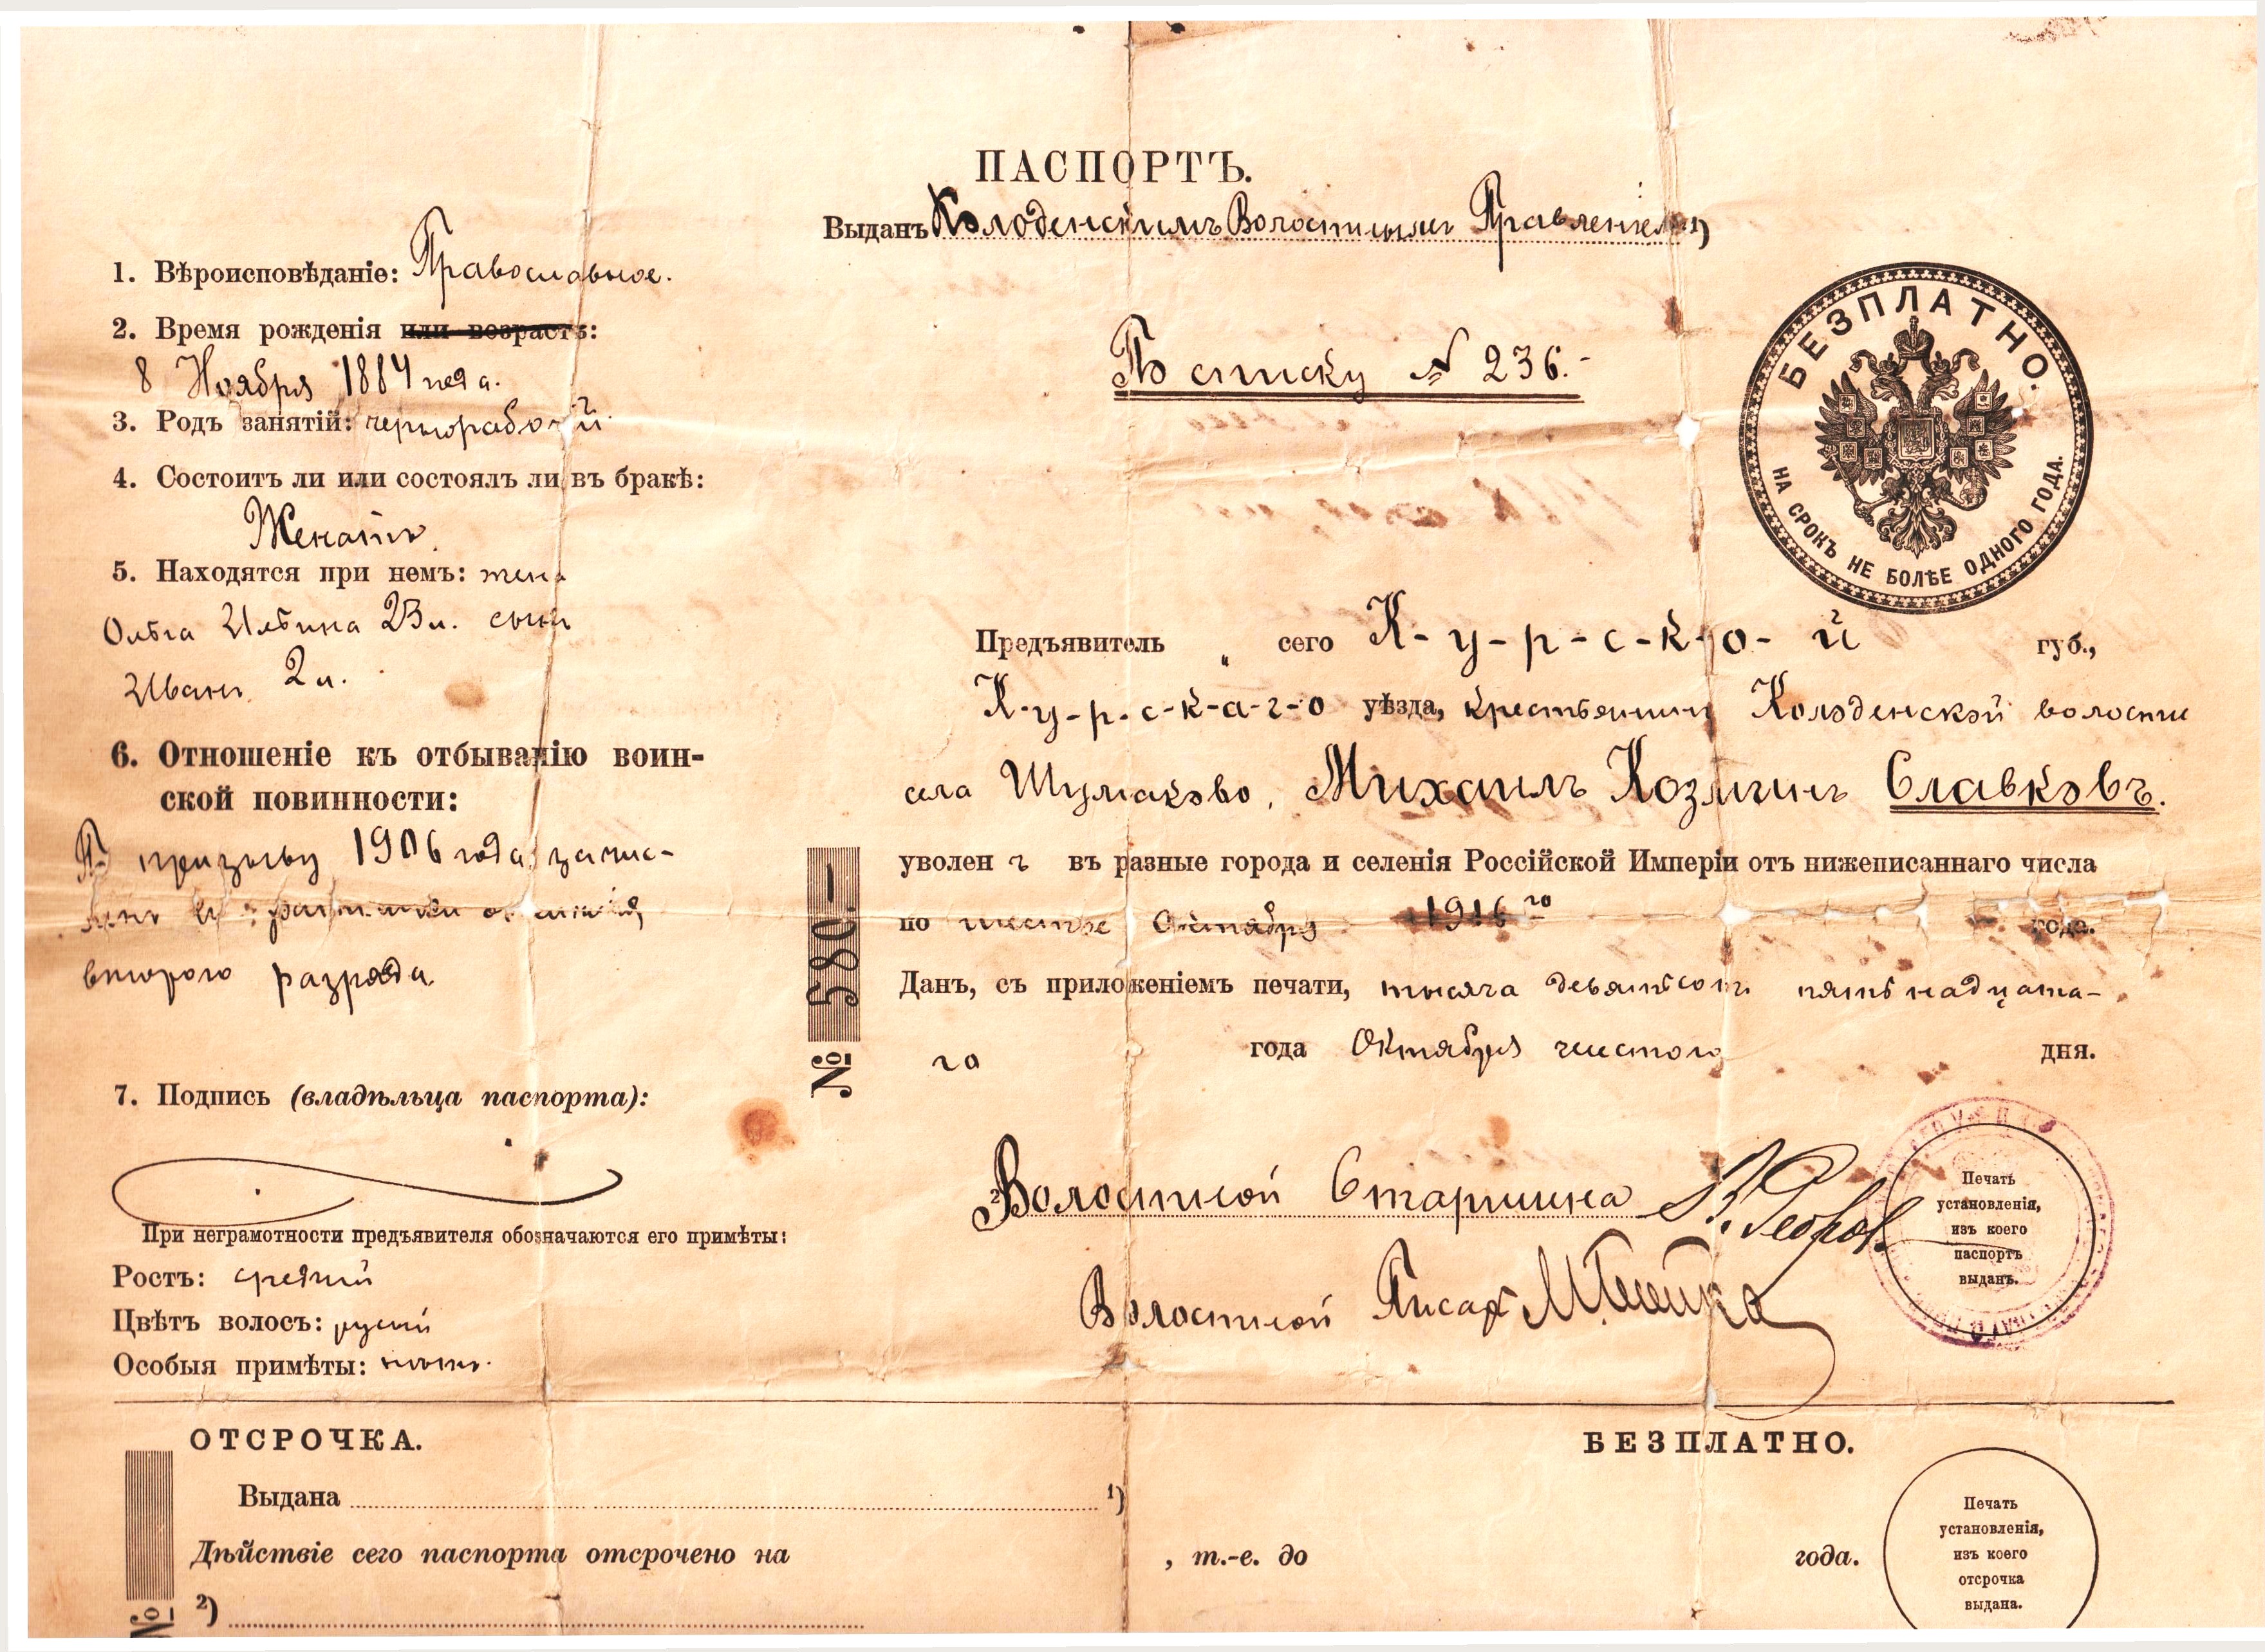 ПАСПОРТЪ.
Выданъ Колоденскимъ Волостнымъ Правленіемъ 1)
По списку № 236.-
БЕЗПЛАТНО.
НА СРОКЪ НЕ БОЛѢЕ ОДНОГО ГОДА.
1. Вѣроисповѣданіе: Православное.
2. Время рожденія или возрастъ:
8 Ноября 1884 года.
3. Родъ занятій: чернорабочій.
4. Состоитъ ли или состоялъ ли въ бракѣ:
Женатъ.
5. Находятся при немъ: жена
Ольга Ильина 23 л. сынъ
Иванъ 2 л.
6. Отношеніе къ отбыванію воин-
ской повинности:
По призыву 1906 года, зачис-
ленъ въ ратники ополченія
второго разряда.
7. Подпись (владѣльца паспорта):
При неграмотности предъявителя обозначаются его примѣты:
Ростъ: средній
Цвѣтъ волосъ: русый
Особыя примѣты: нѣтъ.
№ 580.-
Предъявитель „ сего К-у-р-с-к-о-й губ.,
К-у-р-с-к-а-г-о уѣзда, крестьянинъ Колоденской волости
села Шумаково, Михаилъ Козминъ Славковъ.
уволен ъ въ разные города и селенія Россійской Имперіи отъ нижеписаннаго числа
по шестое Октября 1916 го года.
Данъ, съ приложеніемъ печати, тысяча девятьсотъ пятьнадцата-
го года Октября шестого дня.
Волостной Старшина
Волостной Писарь
Печать
установленія,
изъ коего
паспортъ
выданъ.
ОТСРОЧКА.
БЕЗПЛАТНО.
Выдана 1)
Дѣйствіе сего паспорта отсрочено на , т.-е. до года.
2)
№
Печать
установленія,
изъ коего
отсрочка
выдана.